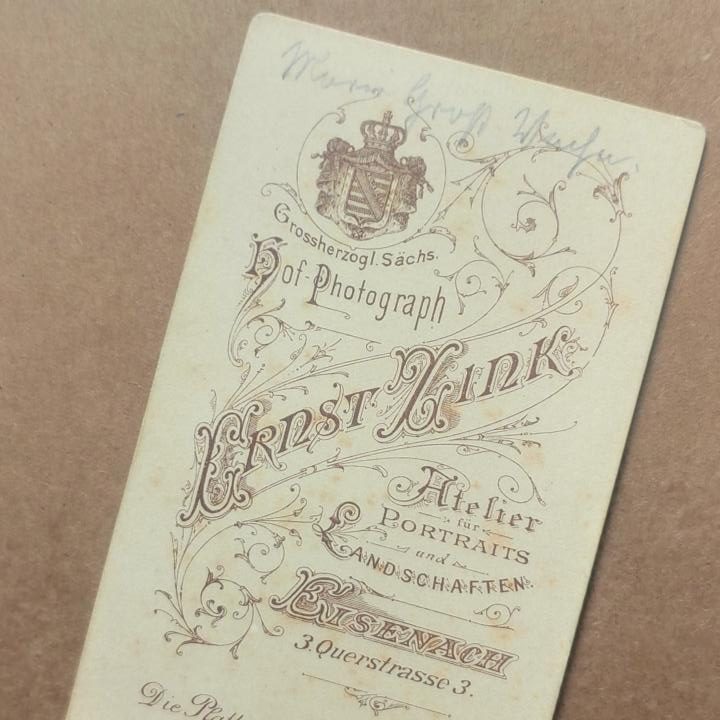 Groß
Grossherzogl. Sächs.
Hof-Photograph
Ernst Zink
Atelier
für
Portraits
und
Landschaften.
Eisenach
3. Querstrasse 3.
Die